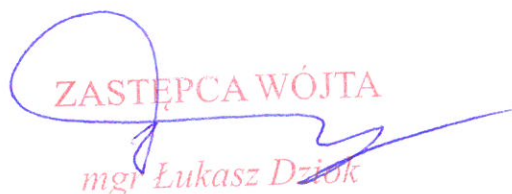 ZASTĘPCA WÓJTA
mgr Łukasz Dziok